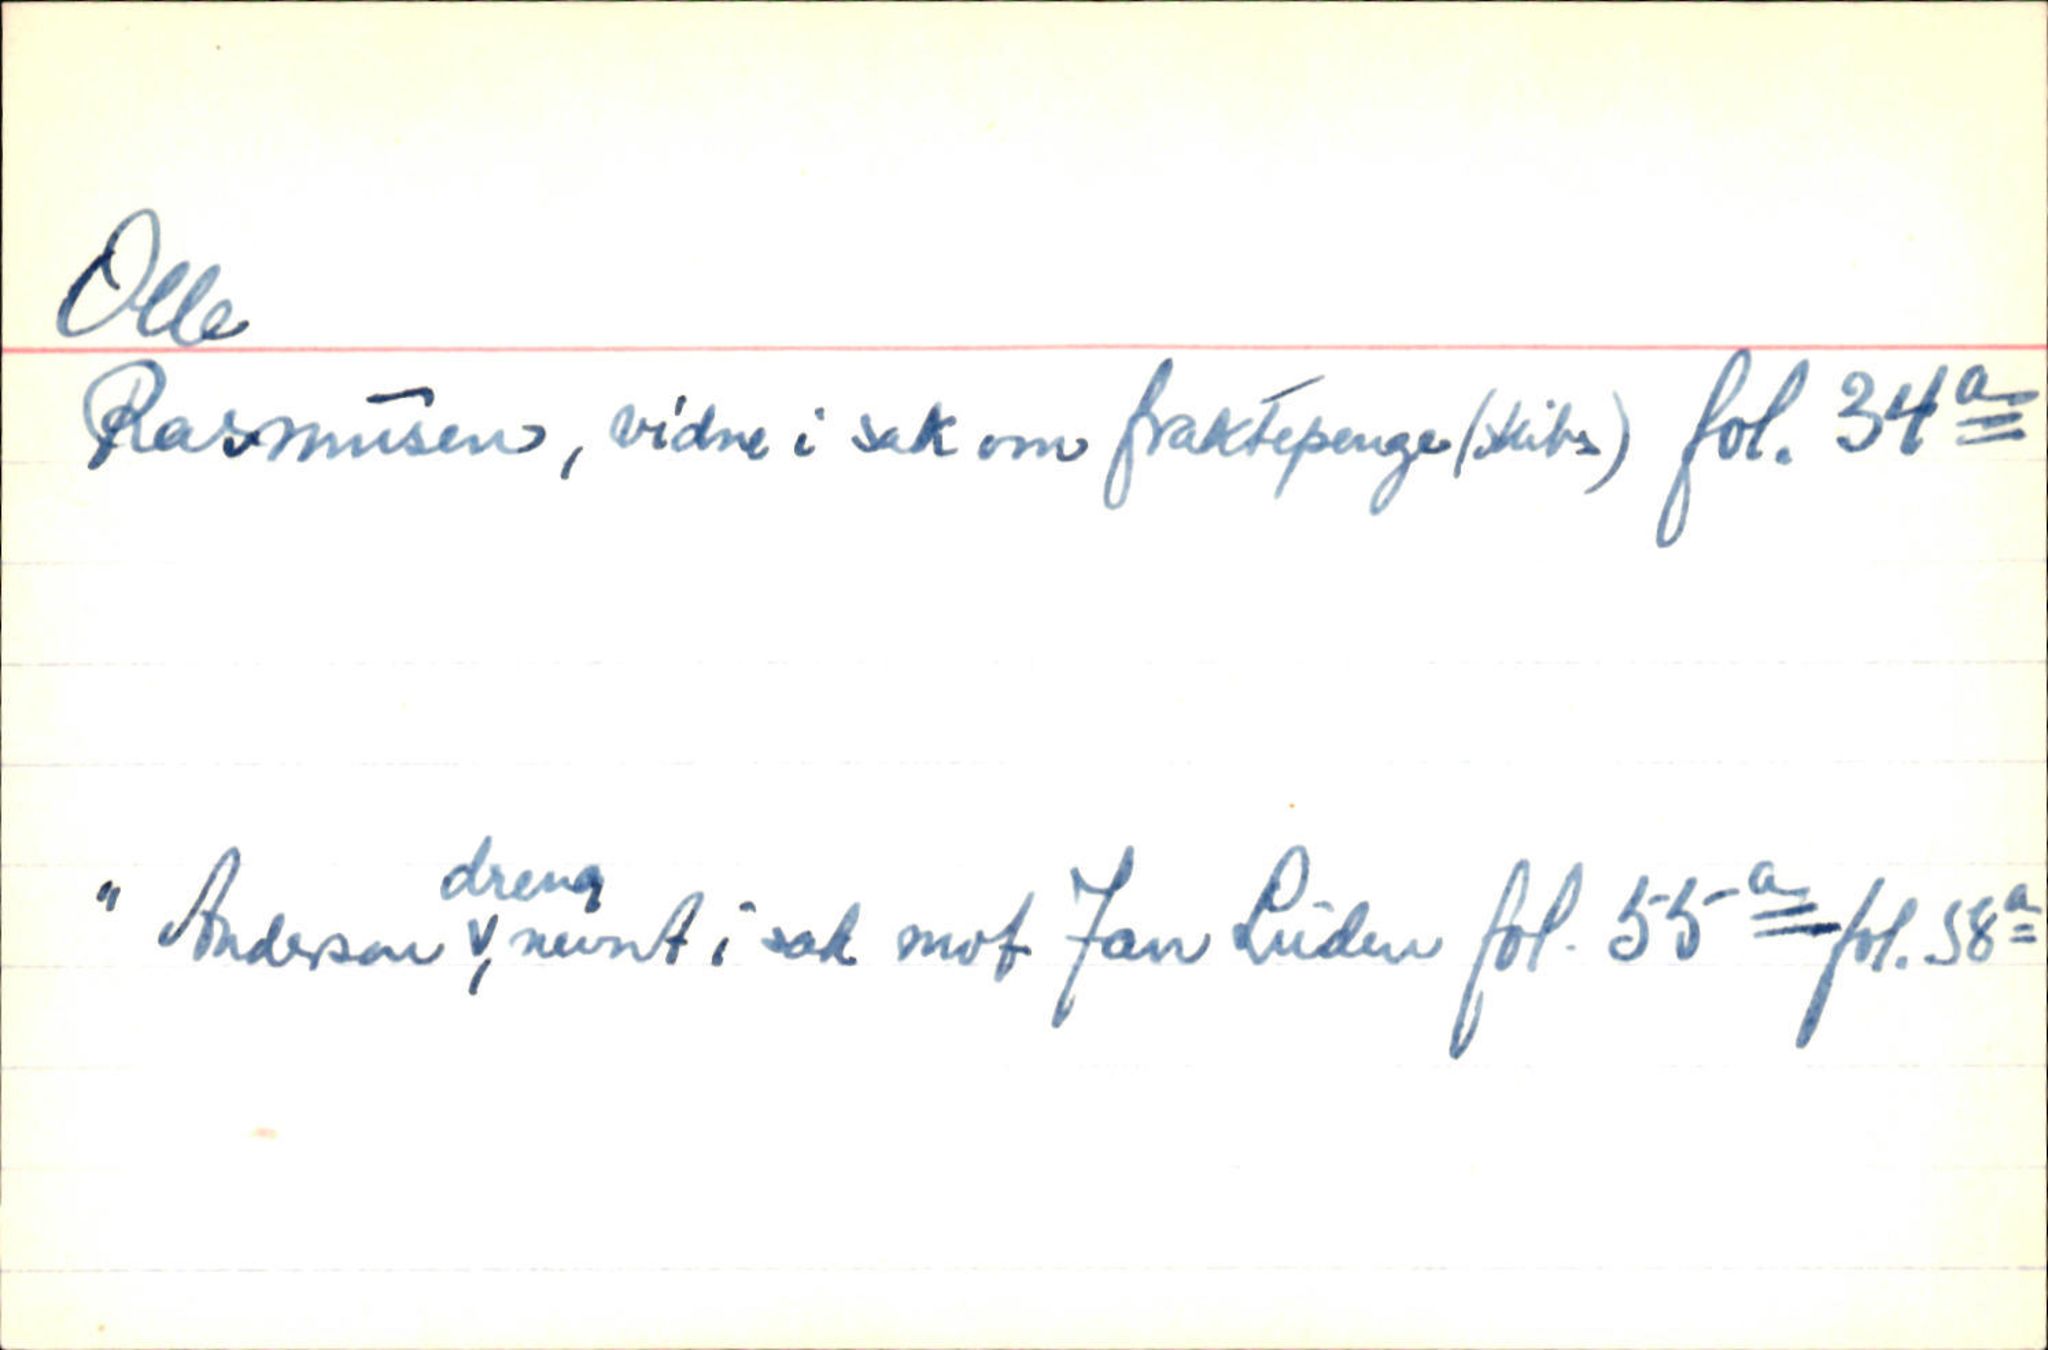 Olle
Rasmusen, vidne i sak om fraktepenge (skibs) fol. 34a
" Anderson dreng, nevnt i sak mot Jan Lüden fol. 55a fol. 58a